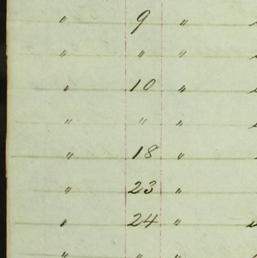 " 9 "
" " "
" 10 "
" " "
" 18 "
" 23 "
" 24 "
" " "